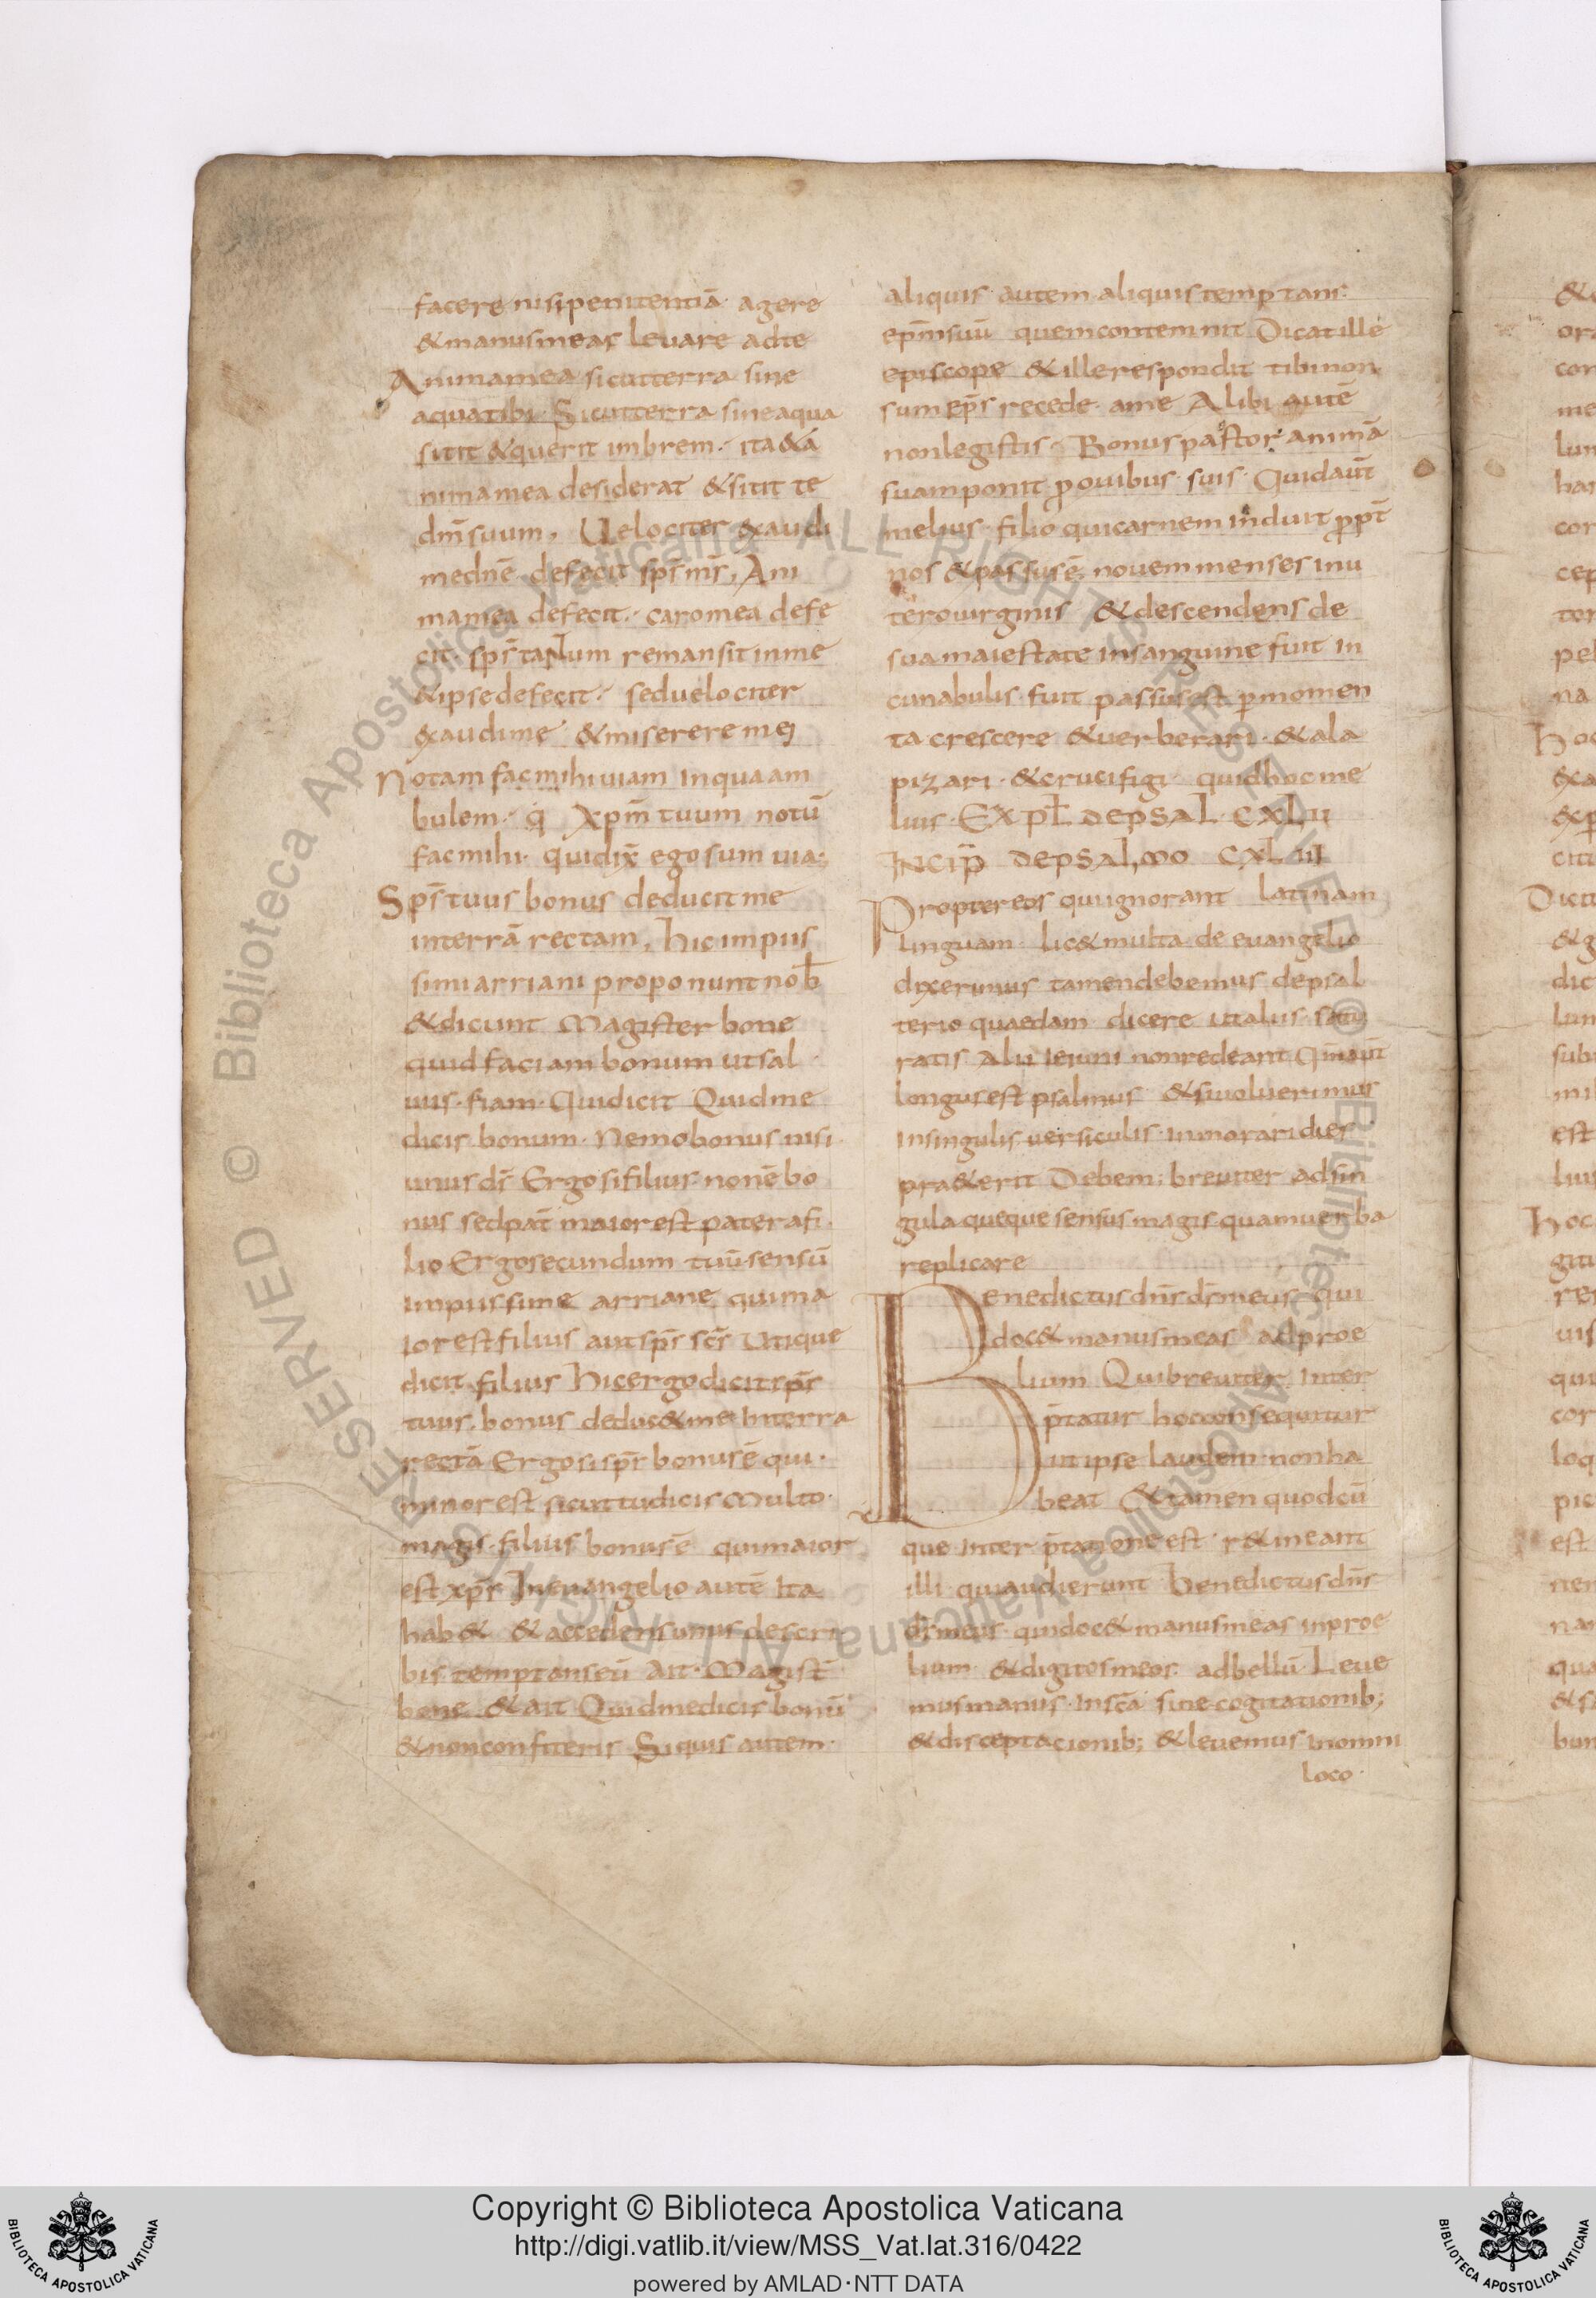 facere nisi penitentiā agere
& manus meas levare ad te
Anima mea sicut terra sine
aqua tibi. Sicut terra sine aqua
sitit & querit imbrem. ita & a
nima mea desiderat & sitit te
dn̄m suum. Velociter exaudi
me dn̄e defecit sps̄ ms̄, Ani
ma mea defecit. caro mea defe
cit. sps̄ tantum remansit in me
& ipse defecit. sed velociter
exaudi me & miserere mei
Notam fac mihi viam in qua am
bulem. xp̄m tuum notū
fac mihi. qui dix̄ ego sum via;
Sps̄ tuus bonus deducit me
in terrā rectam, hic impiis
simi arriani proponunt nob̄
& dicunt Magister bone
quid faciam bonum ut sal
vus fiam. Qui dicit Quid me
dicis bonum. Nemo bonus nisi
unus ds̄ Ergo si filius non ē bo
nus sed pat̄ maior est pater a fi
lio Ergo secundum tuū sensū
impiissime arriane qui ma
ior est filius aut sps̄ scs̄ Utique
dicit filius hic ergo dicit sps̄
tuus bonus deduc& me in terra
rectā Ergo si sps̄ bonus ē qui
minor est sicut tu dicis Multo
magis filius bonus ē qui maior
est xps̄ In evangelio autē ita
hab& & accedens unus de scri
bis temptans eū ait Magist̄
bone & ait Quid me dicis bonū
& non confiteris Si quis autem
aliquis autem aliquis temptans
ep̄m suū quem contemnit Dicat ille
episcope & ille respondit tibi non
sum ep̄s recede a me Alibi autē
non legistis. Bonus pastor animā
suam ponit p̄ ovibus suis Quid aut̄
melius filio qui carnem induit ppt̄
nos & passus ē, novem menses in u
tero virginis & descendens de
sua maiestate in sanguine fuit in
cunabulis fuit passus est p momen
ta crescere & verberari. & ala
pizari. & crucifigi quid hoc me
lius. EXPL̄ DE PSAL CXLII
INCIP̄ DE PSALMO CXLIII
Propter eos qui ignorant latinam
linguam lic& multa de evangelio
dixerimus tamen debemus de psal
terio quaedam dicere ut aliis satu
ratis alii ieiuni non redeant Qm̄ aut̄
longus est psalmus & si voluerimus
in singulis versiculis inmorari dies
pra&erit Debem; breviter ad sin
gula queque sensus magis quam verba
replicare
Benedictus dn̄s ds̄ meus qui
doc& manus meas ad proe
lium Qui breviter inter
p̄tatur hoc consequitur
ut ipse laudem non ha
beat & tamen quodcū
que interp̄tatione est r&ineant
illi qui audierunt Benedictus dn̄s
ds̄ meus qui doc& manus meas in proe
lium & digitos meos ad bellū Leve
mus manus in scā sine cogitationib;
& disceptacionib; & levemus in omni
loco.
&
ora
con
me
lun
cor
cep
tor
pel
na
hoc
exa
exp
citu
Dicit
& g
dic
lun
sub
mi
est
lius
hoc
gitu
res
uis
qui
cor
loq
pic
est
nem
nar
qua
& sa
bun
© Biblioteca Apostolica Vaticana ALL RIGHTS RESERVED © Biblioteca Apostolica Vaticana ALL RIGHTS RESERVED
Copyright © Biblioteca Apostolica Vaticana
http://digi.vatlib.it/view/MSS_Vat.lat.316/0422
powered by AMLAD·NTT DATA
BIBLIOTECA APOSTOLICA VATICANA
BIBLIOTECA APOSTOLICA VATICANA